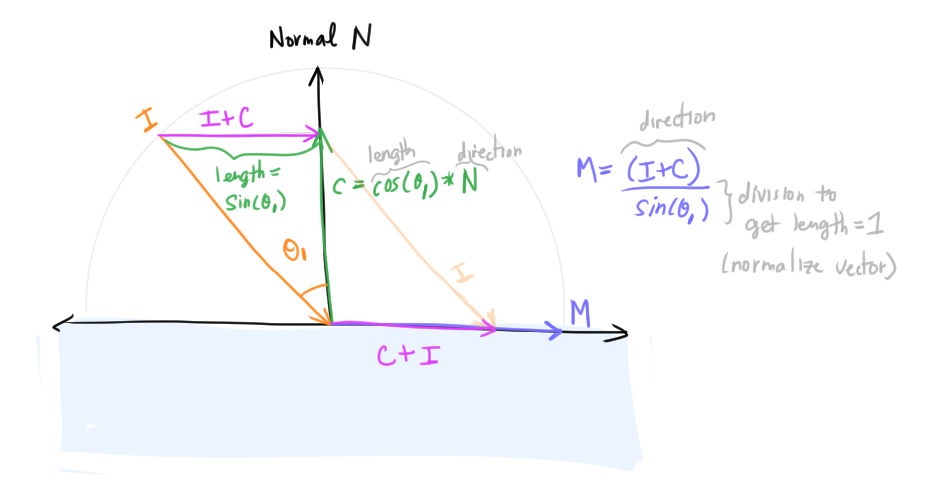 Normal N
I
I+C
length=
sin(θ₁)
length
direction
C = cos(θ₁)*N
θ₁
I
M
C+I
direction
M= (I+C)
sin(θ₁)
division to
get length=1
(normalize vector)